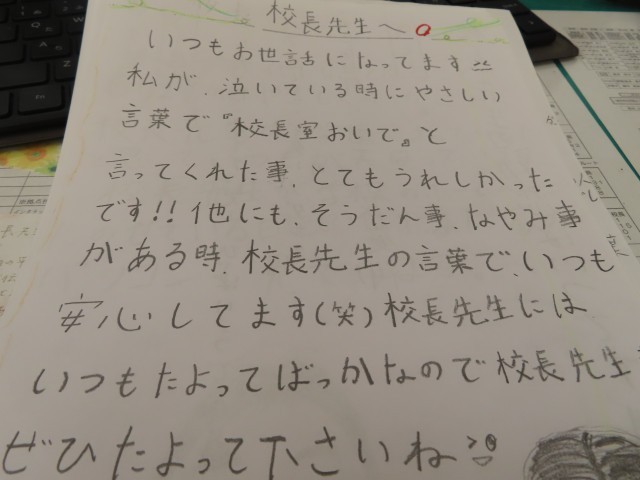 校長先生へ
いつもお世話になってます
私が、泣いている時にやさしい
言葉で『校長室おいで』と
言ってくれた事、とてもうれしかった
です!!他にも、そうだん事、なやみ事
がある時、校長先生の言葉で、いつも
安心してます(笑)校長先生には
いつもたよってばっかなので校長先生
ぜひたよって下さいね